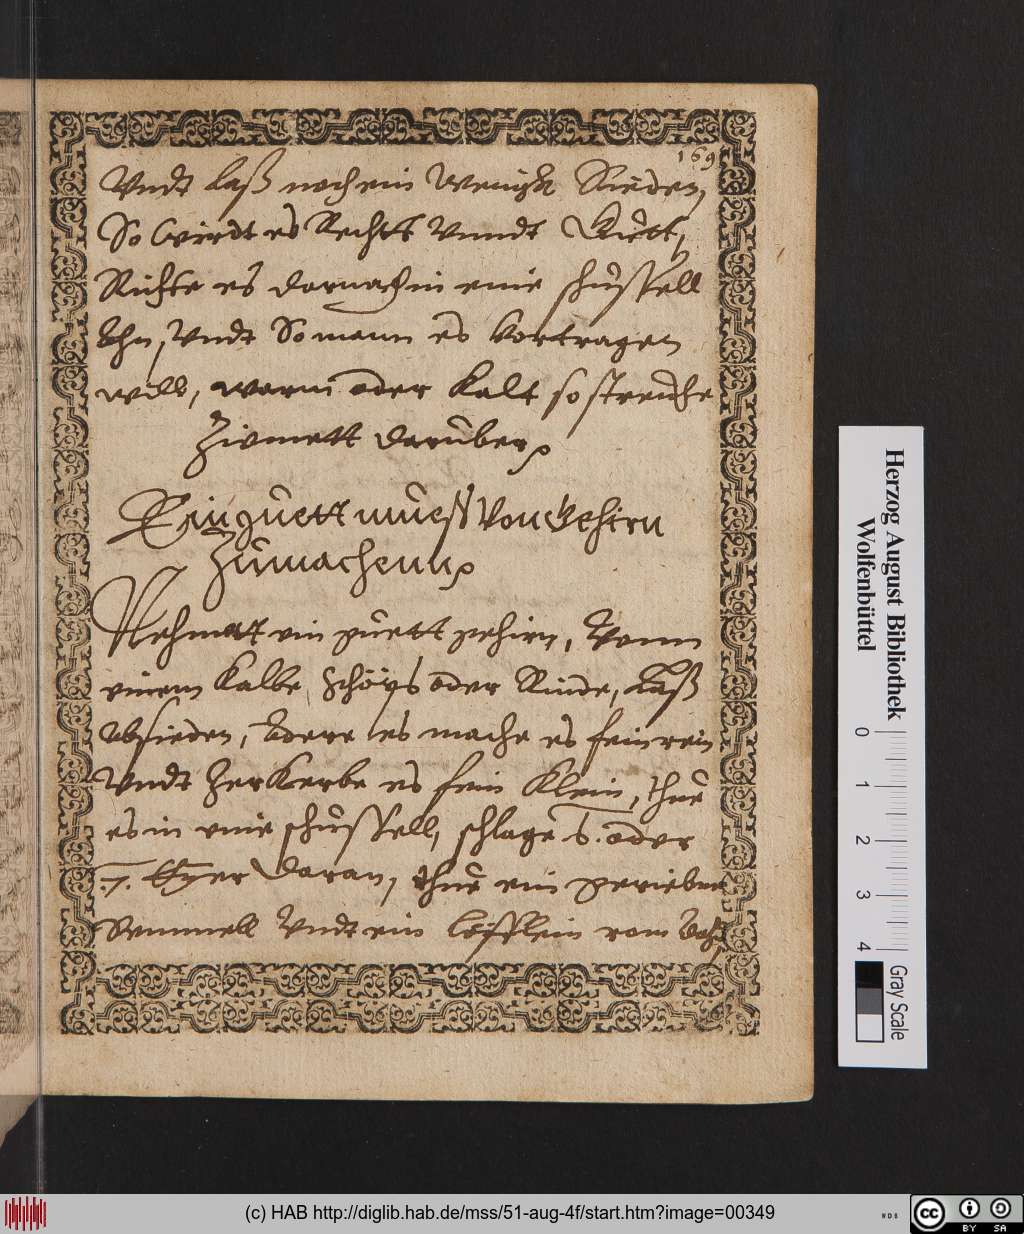 169
Vndt laß noch ein Wenigk Sieden,
So wirdt es Rechtt Vnndt Guett,
Richte es darnach in eine schüssell
Ahn, Vndt So mann es Vortragen
will, warm oder kalt so streiche
Zimmett darüber
Ein guett mueß Von Gehirn
Zumachenn
Nehmet ein guett gehirn, Vonn
einem Kalbe, Schöps oder Rinde, Laß
absieden, Adere es mache es fein rein
Vndt Zerkerbe es fein Klein, thue
es in eine schüssell, schlage 6. oder
.7. Eyer daran, thue ein gerieben
Semmell Vndt ein löfflein
Herzog August Bibliothek
Wolfenbüttel
0 1 2 3 4
Gray Scale
(c) HAB http://diglib.hab.de/mss/51-aug-4f/start.htm?image=00349
WDB
cc BY SA